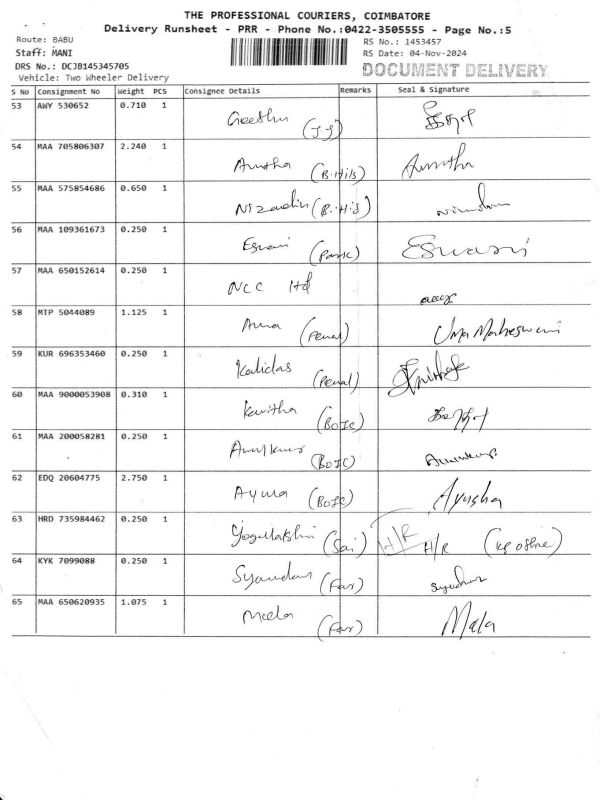 THE PROFESSIONAL COURIERS, COIMBATORE
Delivery Runsheet - PRR - Phone No.:0422-3505555 - Page No.:5
Route: BABU
Staff: MANI
DRS No.: DCJB145345705
Vehicle: Two Wheeler Delivery
RS No.: 1453457
RS Date: 04-Nov-2024
DOCUMENT DELIVERY
S No Consignment No Weight PCS Consignee Details Remarks Seal & Signature
53 AWY 530652 0.710 1 Geethu (JJ)
54 MAA 705806307 2.240 1 (B.Hils)
55 MAA 575854686 0.650 1 (B.Hils)
56 MAA 109361673 0.250 1 (Park) Eswari
57 MAA 650152614 0.250 1 NCC ltd
58 MTP 5044089 1.125 1 (Penal) Uma Maheswari
59 KUR 696353460 0.250 1 Kalidas (Penal)
60 MAA 9000053908 0.310 1 Kavitha (BOIC)
61 MAA 200058281 0.250 1 (BOIC)
62 EDQ 20604775 2.750 1 (BOIC) Ayusha
63 HRD 735984462 0.250 1 (Sai) H/R H/R
64 KYK 7099088 0.250 1 (Far)
65 MAA 650620935 1.075 1 (Far) Mala